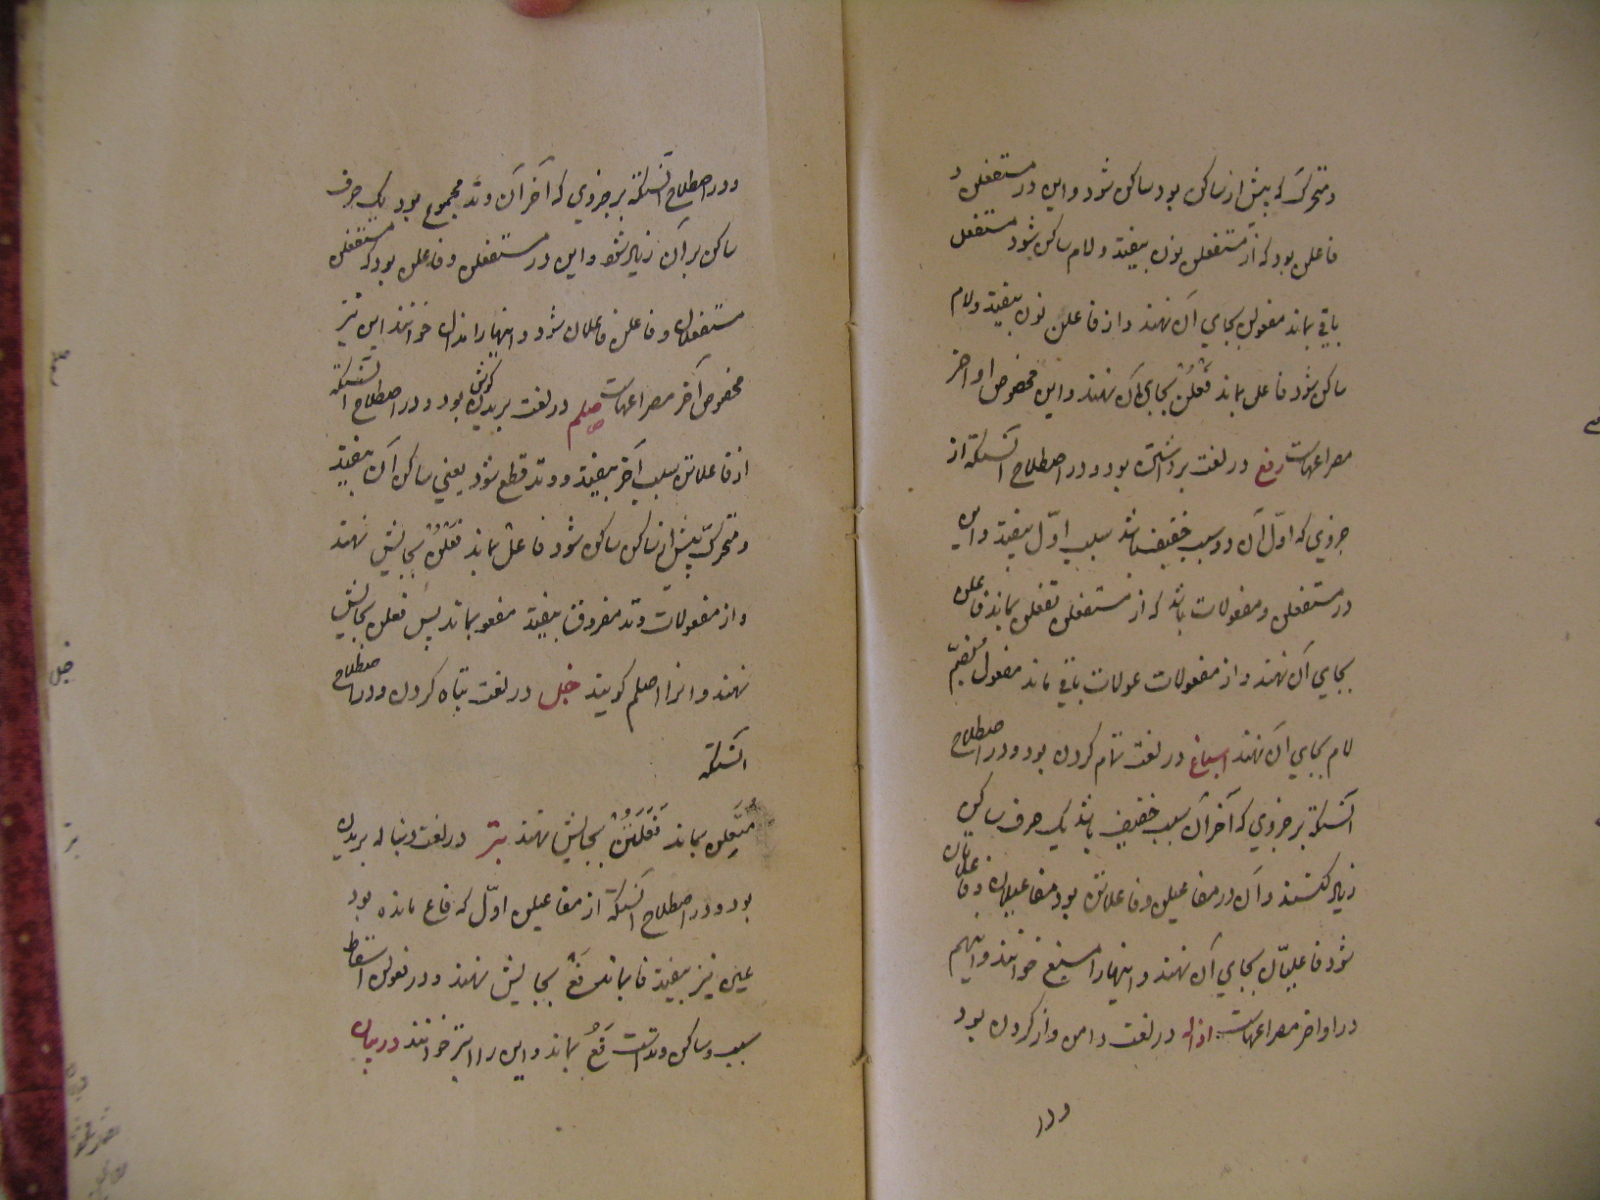 و متحرک که پیش از ساکن بود ساکن شود و این در مستفعلن و
فاعلن بود که از مستفعلن نون بیفتد و لام ساکن شود مستفعل
باقی بماند مفعولن بجای آن نهند و از فاعلن نون بیفتد و لام
ساکن شود فاعل بماند فَعْلُنْ بجای آن نهند و این مخصوص اواخر
مصراعهاست رفع در لغت برداشتن بود و در اصطلاح آنستکه از
جزوی که اوّل آن دو سبب خفیف باشد سبب اوّل بیفتد و این
در مستفعلن و مفعولات باشد که از مستفعلن تفعلن بماند فاعلن
بجای آن نهند و از مفعولات عولات باقی ماند مفعول بضمّ
لام بجای آن نهند اسباغ در لغت تمام کردن بود و در اصطلاح
آنستکه بر جزوی که آخر آن سبب خفیف باشد یک حرف ساکن
زیاد کنند و آن در مفاعیلن و فاعلاتن بود مفاعیلان و فاعلاتان
شود فاعلیّان بجای آن نهند و اینهارا مسبغ خوانند و اینهم
در اواخر مصراعهاست اذاله در لغت دامن دراز کردن بود
و در
و در اصطلاح آنستکه بر جزوی که آخر آن وتد مجموع بود یک حرف
ساکن بر آن زیاد شود و این در مستفعلن و فاعلن بود که مستفعلن
مستفعلان و فاعلن فاعلان شود و اینهارا مذال خوانند این نیز
مخصوص آخر مصراعهاست صلم در لغت بریدن گوش بود و در اصطلاح آنستکه
از فاعلاتن سبب آخر بیفتد و وتد قطع شود یعنی ساکن آن بیفتد
و متحرک پیش از ساکن ساکن شود فاعل بماند فَعْلُنْ بجایش نهند
و از مفعولات وتد مفروق بیفتد مفعو بماند پس فعلن بجایش
نهند و انرا اصلم گویند خبل در لغت تباه کردن و در اصطلاح
آنستکه
مُتَعِلن بماند فَعَلَتُنْ بجایش نهند بتر در لغت دنباله بریدن
بود و در اصطلاح آنستکه از مفاعیلن اوّل که فاع مانده بود
عین نیز بیفتد فا بماند فَعْ بجایش نهند و در فعولن اسقاط
سبب و ساکن وتد است فَعُ بماند و این را ابتر خوانند در بیان
خبل
بتر